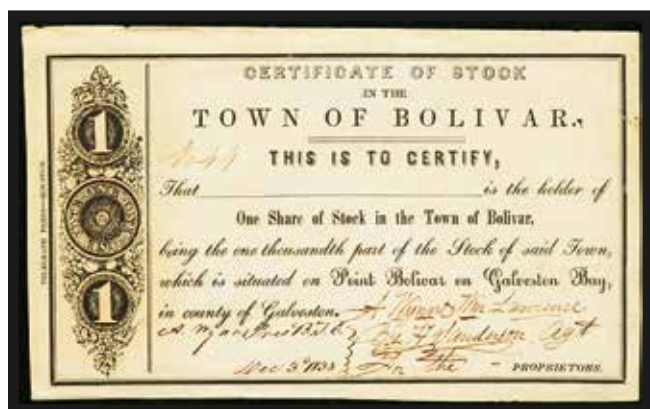 CERTIFICATE OF STOCK
IN THE
TOWN OF BOLIVAR.
THIS IS TO CERTIFY,
That is the holder of
One Share of Stock in the Town of Bolivar,
being the one thousandth part of the Stock of said Town,
which is situated on Point Bolivar on Galveston Bay,
in county of Galveston. A Wynns Wm Lawrence
Henderson Agt
Dec 3d 1838 For the PROPRIETORS.
1
1